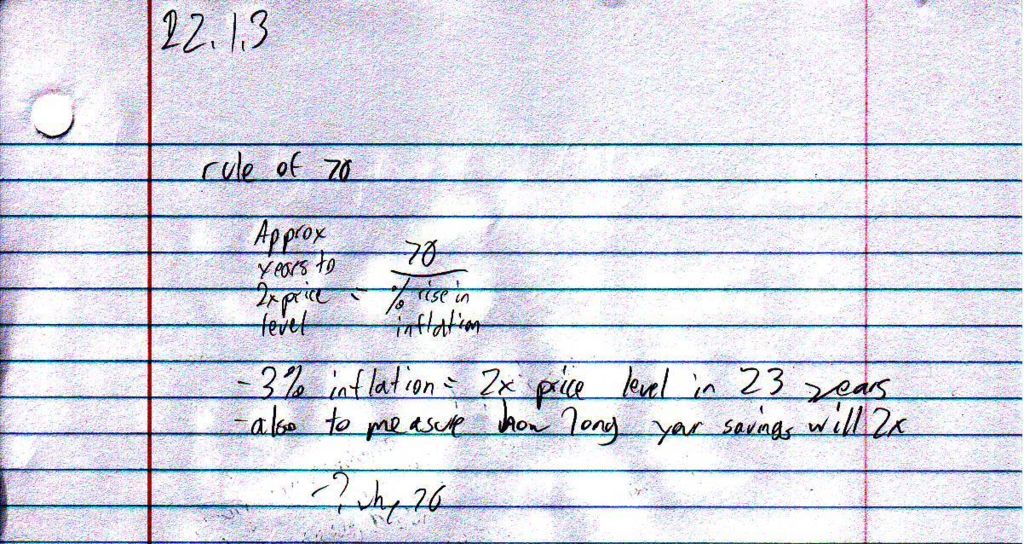 22.1.3
rule of 70
Approx
years to
2x price = 70
level
% rise in
inflation
-3% inflation = 2x price level in 23 years
-also to measure how long your savings will 2x
-? why 70